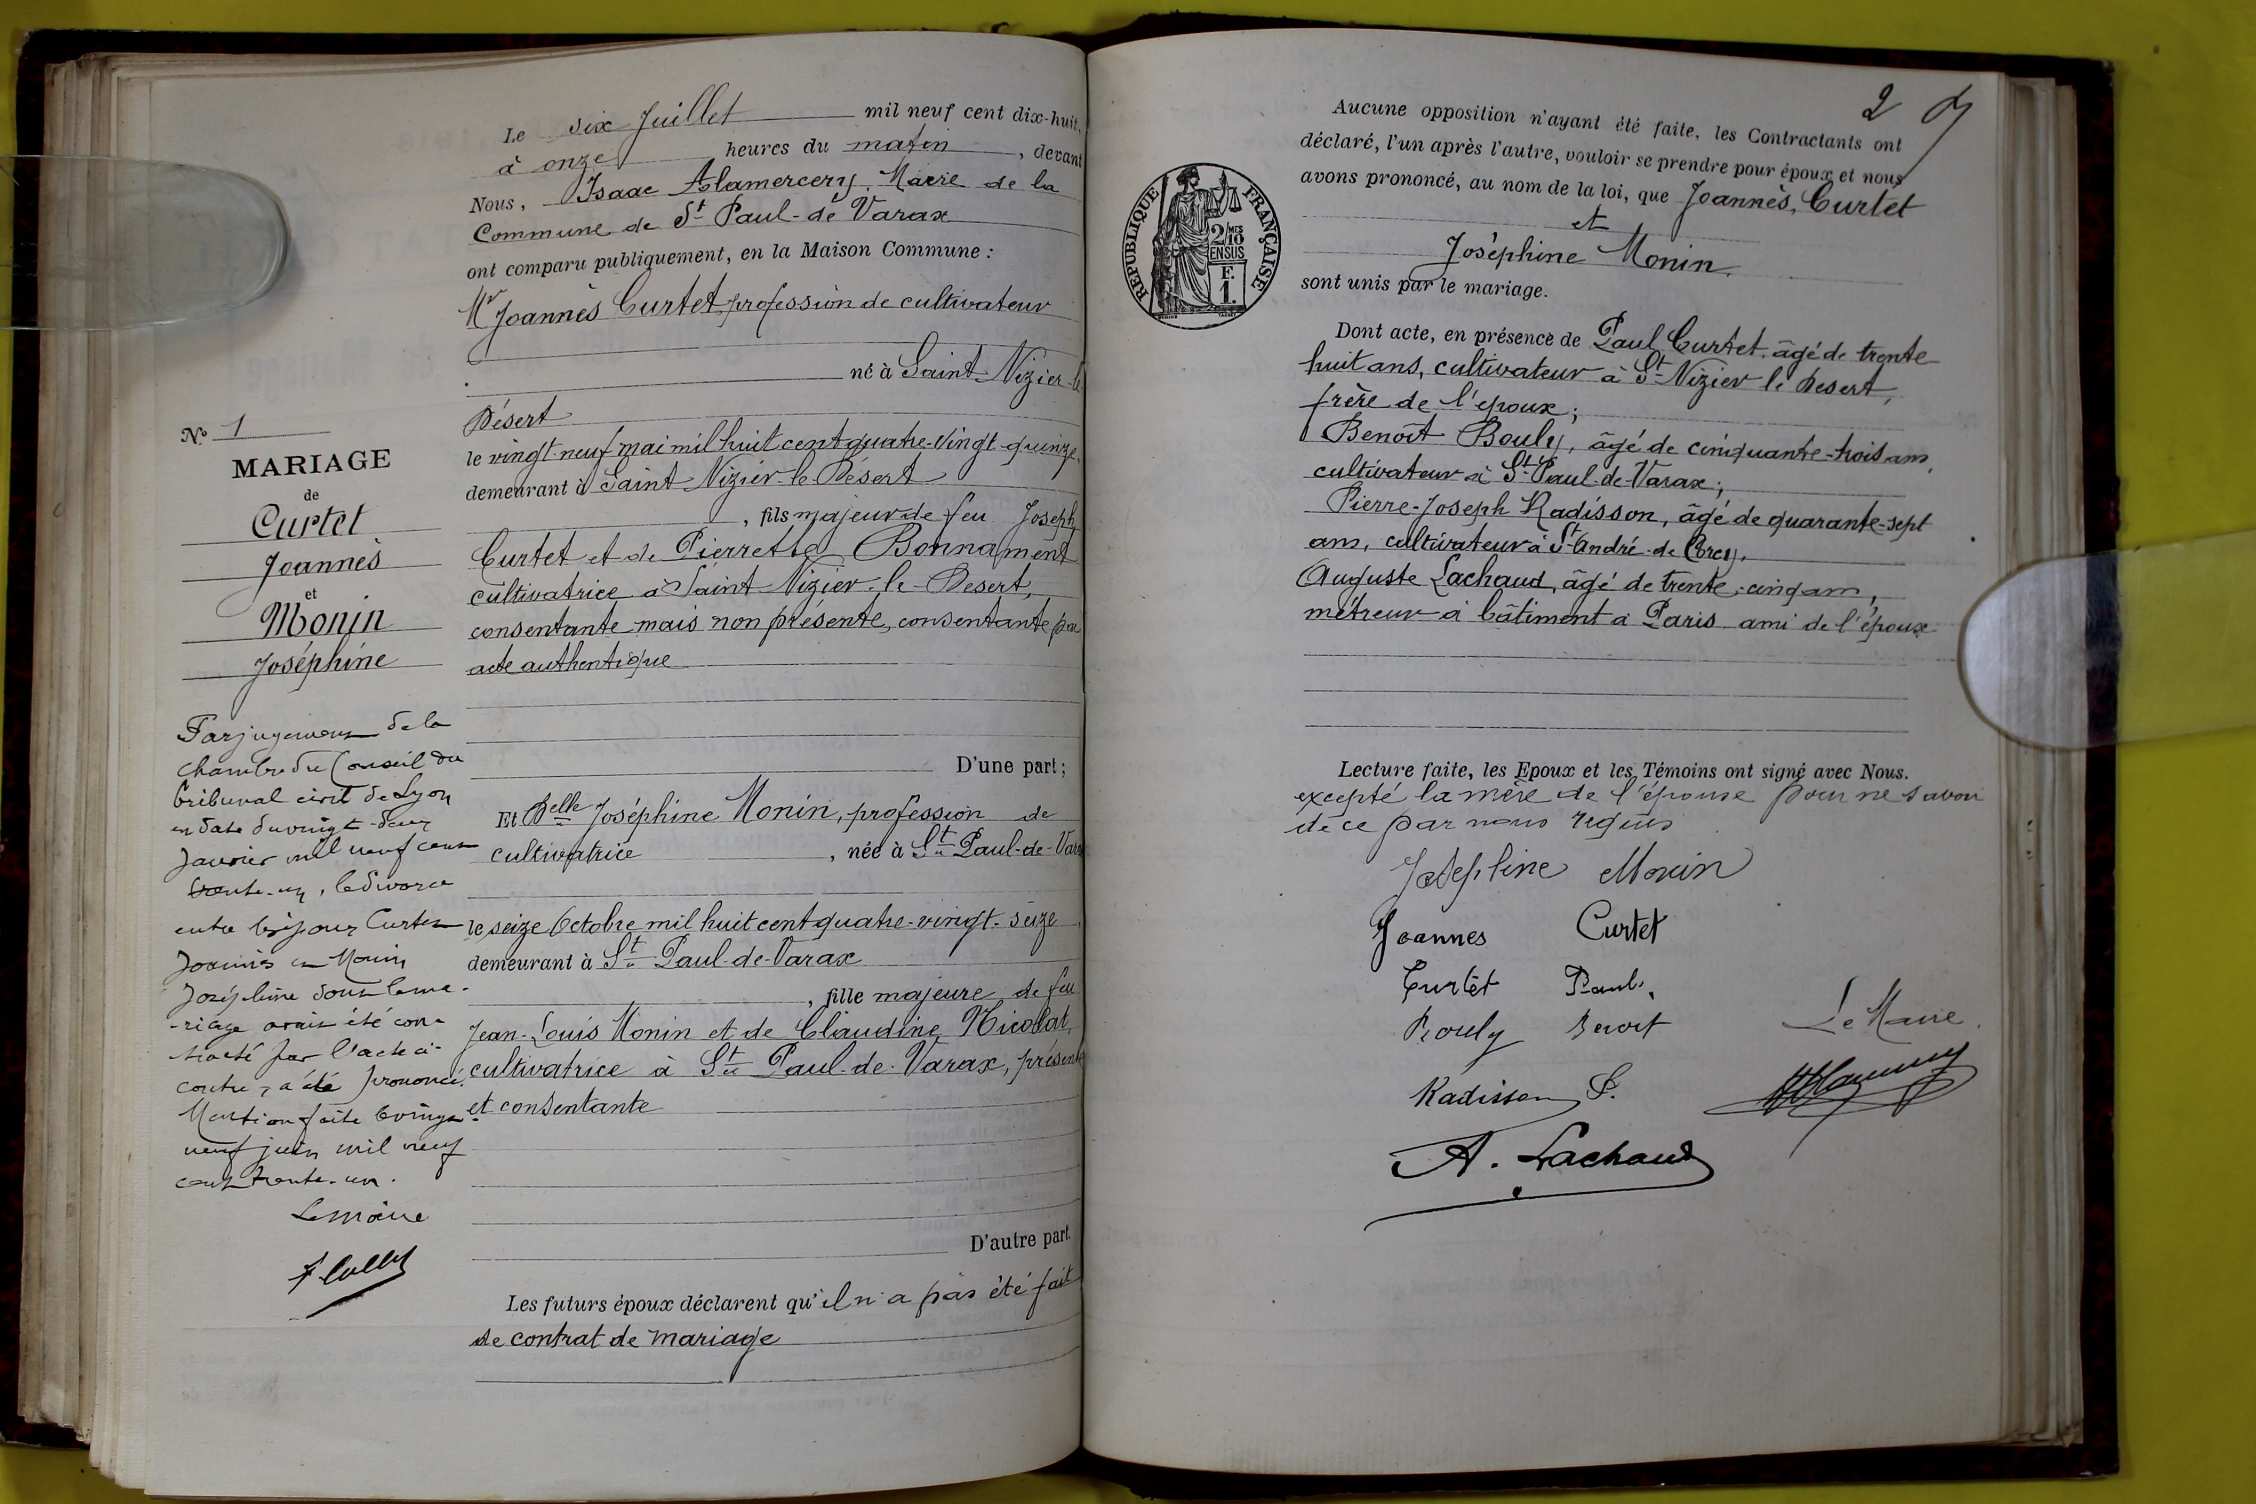 Le six Juillet mil neuf cent dix-huit,
à onze heures du matin, devant
Nous, Isaac Alamercery, Maire de la
Commune de St Paul-de Varax
ont comparu publiquement, en la Maison Commune :
Mr Joannès Curtet, profession de cultivateur
né à Saint-Nizier-le
Désert
le vingt-neuf mai mil huit cent quatre-vingt-quinze
demeurant à Saint Nizier-le-Désert
, fils majeur de feu Joseph
Curtet et de Pierrette Bonnament
cultivatrice à Saint Nizier-le-Desert,
consentante mais non présente, consentante par
acte authentique
D'une part ;
Et Delle Joséphine Monin, profession de
cultivatrice, née à St Paul-de-Varax
le seize Octobre mil huit cent quatre-vingt-seize
demeurant à St Paul-de-Varax
, fille majeure de feu
Jean-Louis Monin et de Claudine Nicolat,
cultivatrice à St Paul-de-Varax, présente
et consentante
D'autre part.
Les futurs époux déclarent qu'il n'a pas été fait
de contrat de mariage
No 1
MARIAGE
de
Curtet
Joannès
et
Monin
Joséphine
Par jugement de la
chambre du Conseil du
tribunal civil de Lyon
en date du vingt-deux
janvier mil neuf cent
trente-un, le divorce
entre les époux Curtet
Joannès et Monin
Joséphine dont le ma-
-riage avait été con-
tracté par l'acte ci-
contre, a été prononcé.
Mention faite le vingt-
neuf juin mil neuf
cent trente-un.
Le maire
2
Aucune opposition n'ayant été faite, les Contractants ont
déclaré, l'un après l'autre, vouloir se prendre pour époux et nous
avons prononcé, au nom de la loi, que Joannès, Curtet
et
Joséphine Monin
sont unis par le mariage.
RÉPUBLIQUE FRANÇAISE
2/10 MES
EN SUS
F.
1.
Dont acte, en présence de Paul Curtet, âgé de trente
huit ans, cultivateur à St Nizier le Desert,
frère de l'epoux ;
Benoît Bouly, âgé de cinquante-trois ans,
cultivateur à St Paul-de-Varax ;
Pierre-Joseph Radisson, âgé de quarante-sept
ans, cultivateur à St André-de Corcy,
Auguste Lachaud, âgé de trente-cinq ans,
métreur à bâtiment à Paris ami de l'époux
Lecture faite, les Epoux et les Témoins ont signé avec Nous.
excepté la mère de l'épouse pour ne savoir
de ce par nous requis
Joséphine Monin
Joannes Curtet
Curtet Paul
Bouly Benoit
Le Maire
Radisson P.
A. Lachaud